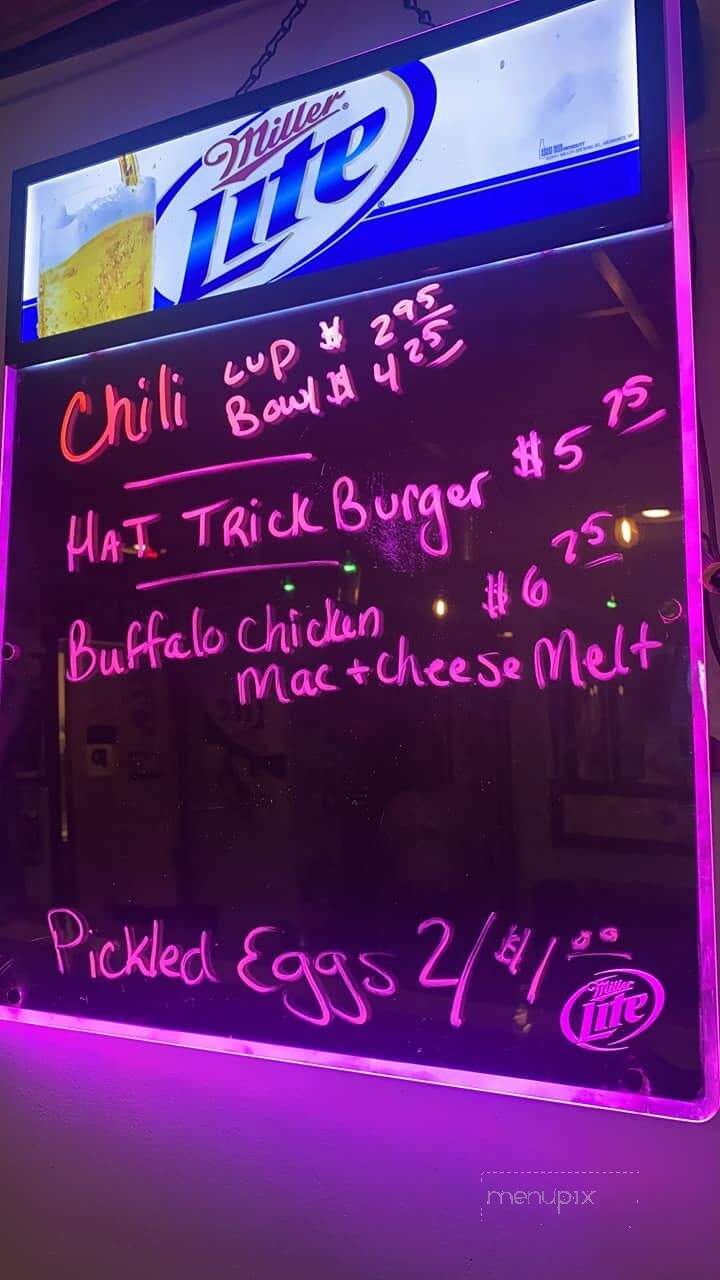 Miller
Lite
Chili Cup $ 2 95
Bowl $ 4 25
HAT TRick Burger $5 75
Buffalo Chicken $6 75
Mac + cheese Melt
Pickled Eggs 2/$1 00
Miller
Lite
menupix